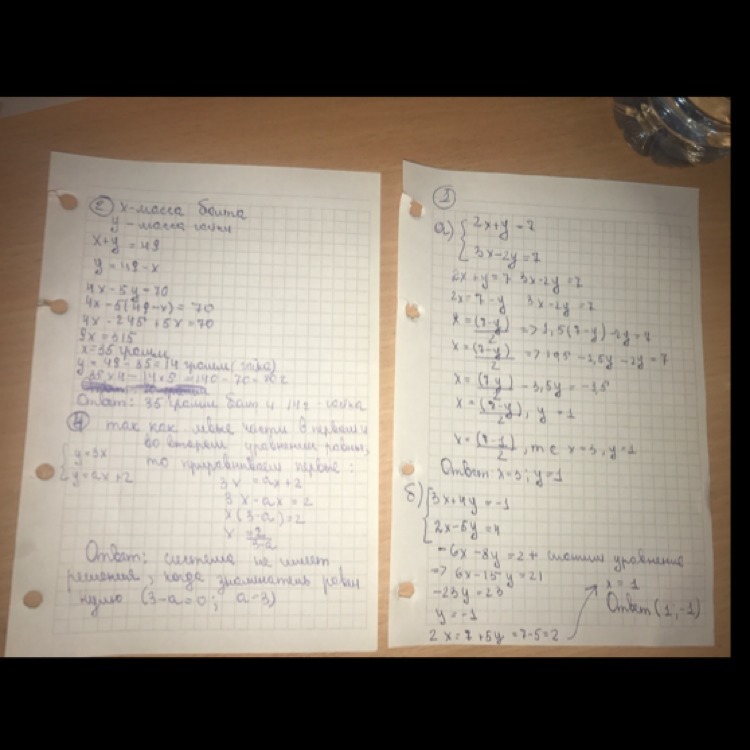 2 x-масса болта
y - масса гайки
x+y = 49
y = 49-x
4x-5y=70
4x-5(49-x) = 70
4x-245+5x=70
9x=315
x=35 грамм
y = 49-35=14 грамм (гайка)
35×4-14×5=140-70=70г
Ответ: 35 грамм болт и 14г - гайка
4 так как левые части в первом и
во втором уравнении равны,
y=3x
то приравниваем первые:
y=ax+2
3x = ax+2
3x-ax=2
x(3-a)=2
x = 2/(3-a)
Ответ: система не имеет
решения, когда знаменатель равен
нулю (3-a=0; a=3)
а) 2x+y=7
3x-2y=7
2x+y=7 3x-2y=7
2x=7-y 3x-2y=7
x=(7-y)/2 => 1,5(7-y)-2y=7
x=(7-y)/2 => 10,5-1,5y-2y=7
x=(7-y)/2 -3,5y=-3,5
x=(7-y)/2, y=1
x=(7-1)/2, т е x=3, y=1
Ответ: x=3; y=1
б) 3x+4y=-1
2x-5y=7
-6x-8y=2 + уравнения
=> 6x-15y=21
-23y=23
x=1
y=-1
Ответ (1;-1)
2x=7+5y=7-5=2